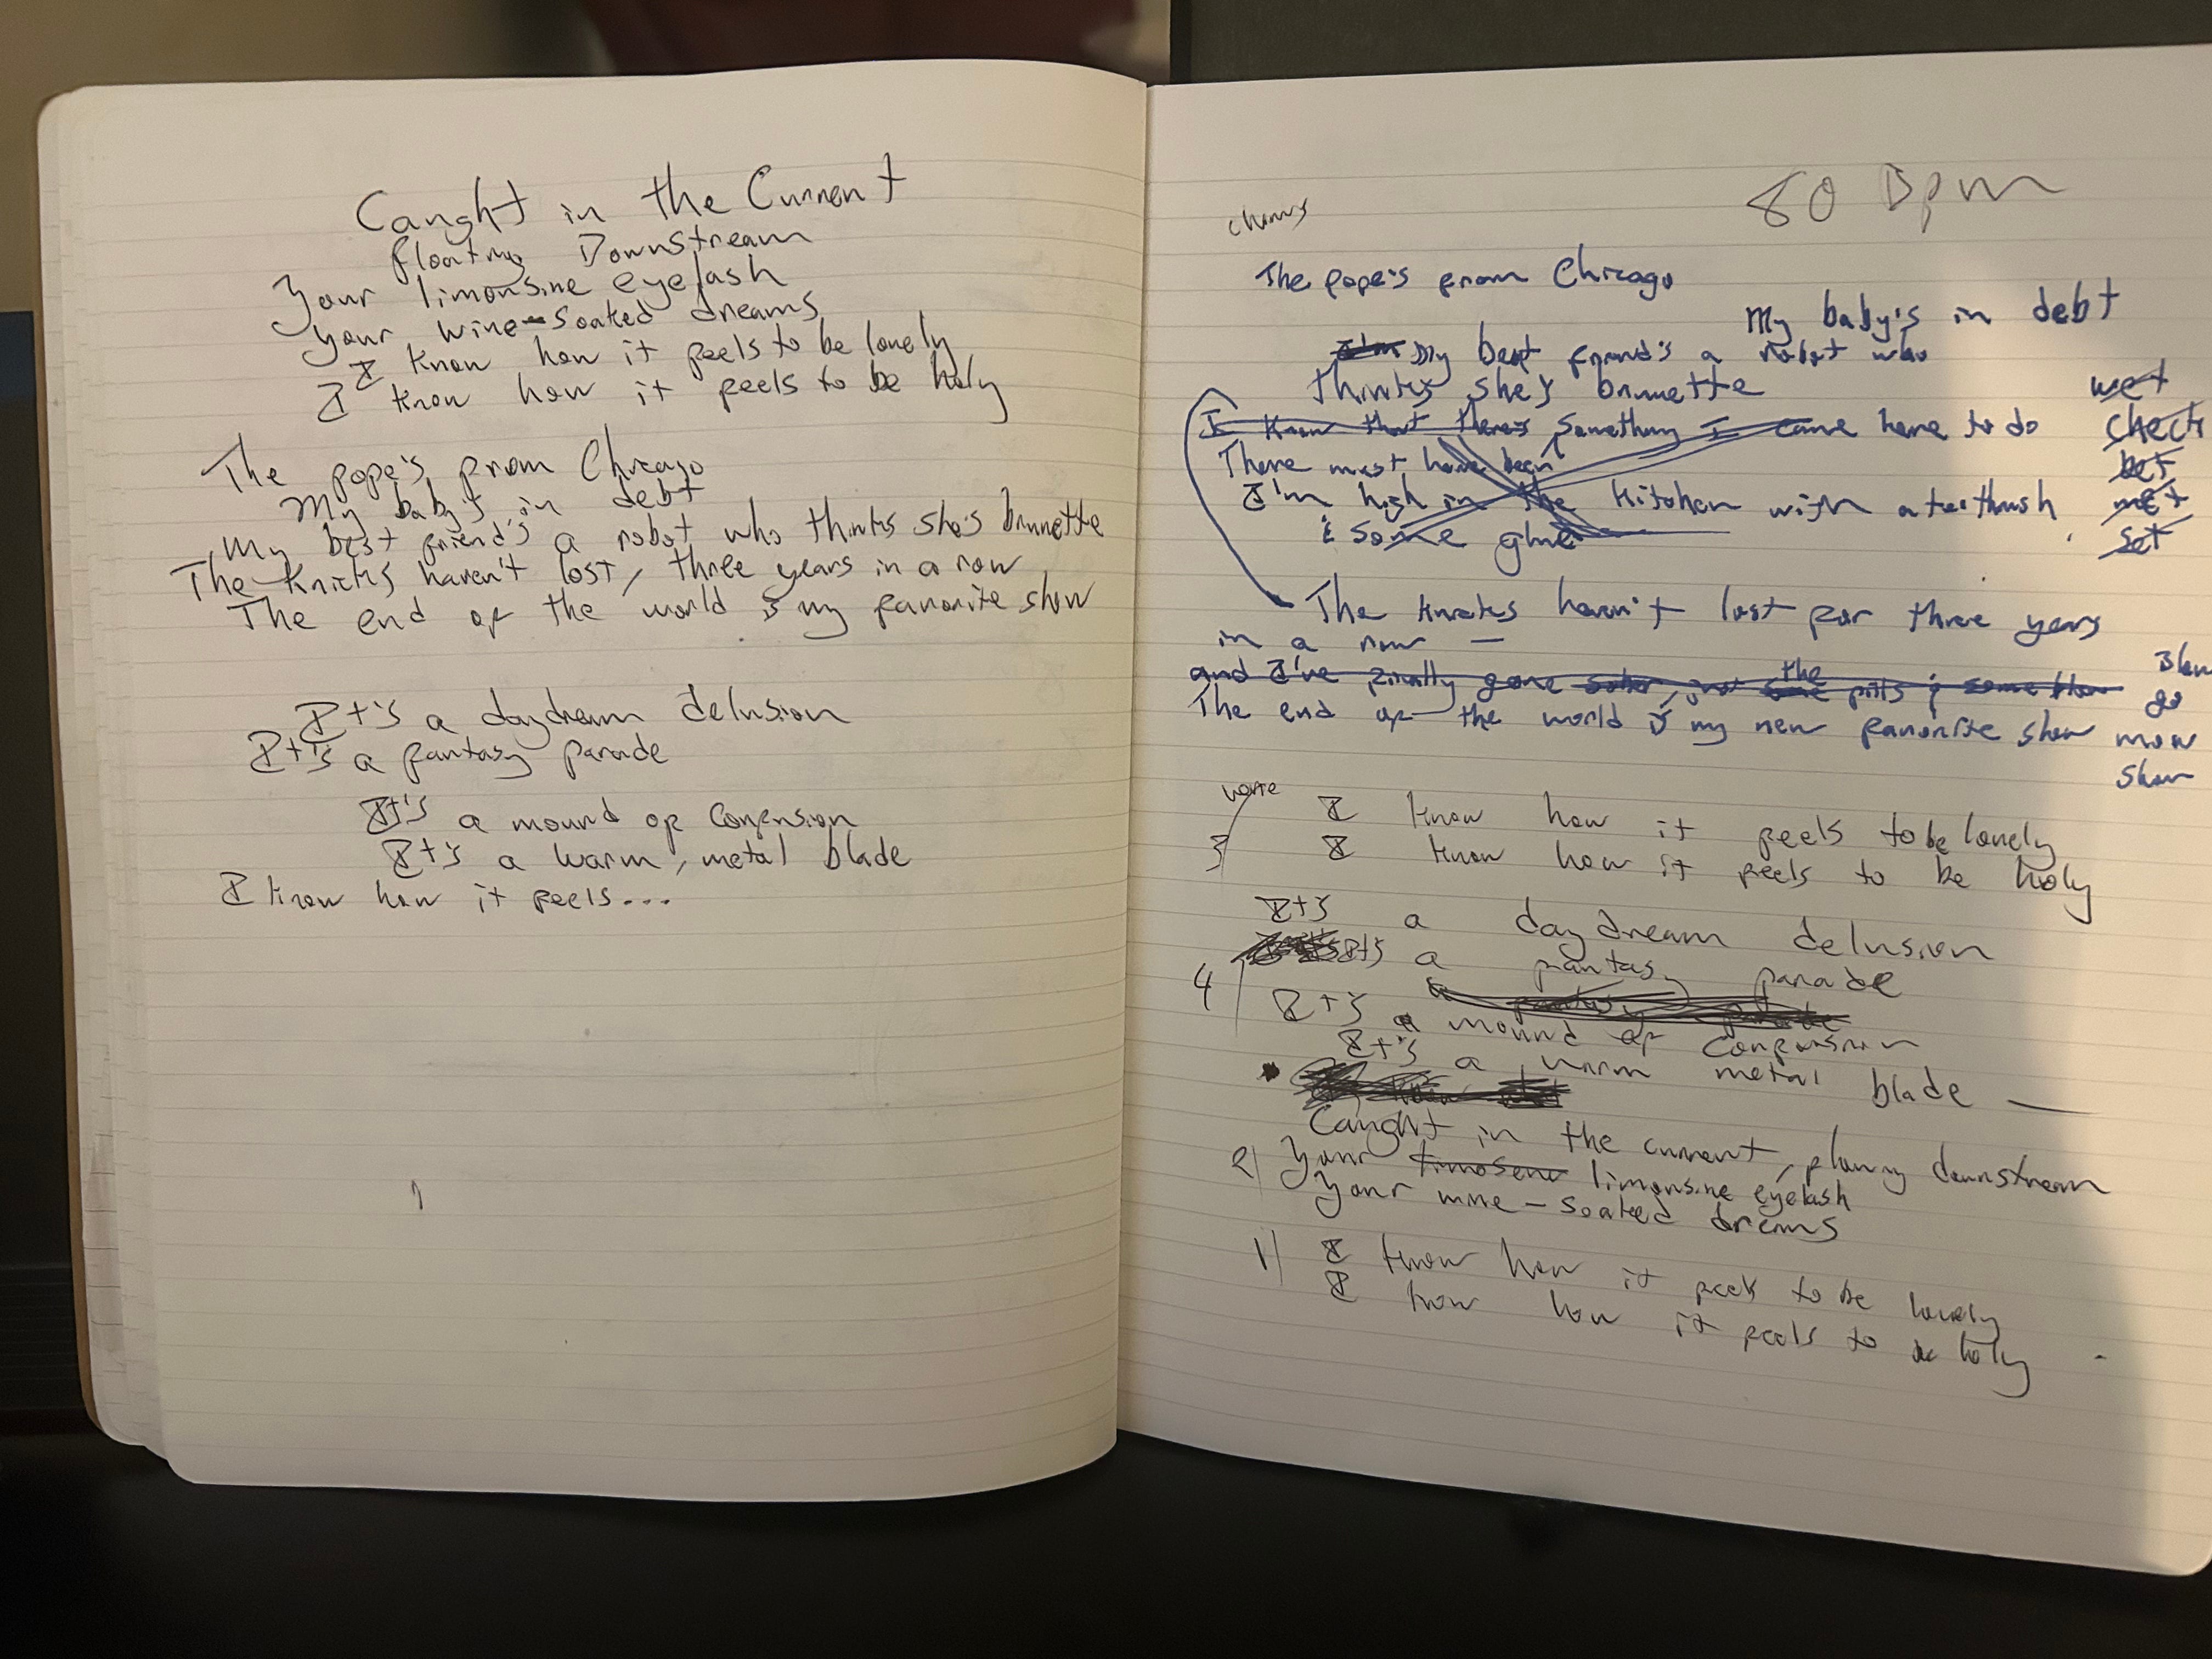 Caught in the Current
floating Downstream
Your limousine eyelash
your wine-soaked dreams
I know how it feels to be lonely
I know how it feels to be holy
The pope's from Chicago
My baby's in debt
My best friend's a robot who thinks she's brunette
The Knicks haven't lost, three years in a row
The end of the world is my favorite show
It's a daydream delusion
It's a fantasy parade
It's a mound of confusion
It's a warm, metal blade
I know how it feels...
80 Bpm
chorus
The pope's from Chicago
My baby's in debt
I'm My best friend's a robot who
thinks she's brunette
wet
I know that there's something I came here to do
check
There must have been
bet
I'm high in the kitchen with a toothbrush
met
& some glue
set
The Knicks haven't lost for three years
in a row —
and I've finally gone sober, just some the pills & some blow
blow
The end of the world is my new favorite show
go
mow
show
verse
I know how it feels to be lonely
3 I know how it feels to be holy
It's a daydream delusion
It's a fantasy parade
4
a fantasy parade
It's a mound of confusion
It's a warm metal blade —
Caught in the current, flowing downstream
2 Your limosene limousine eyelash
Your wine-soaked dreams
1 I know how it feels to be lonely
I know how it feels to be holy